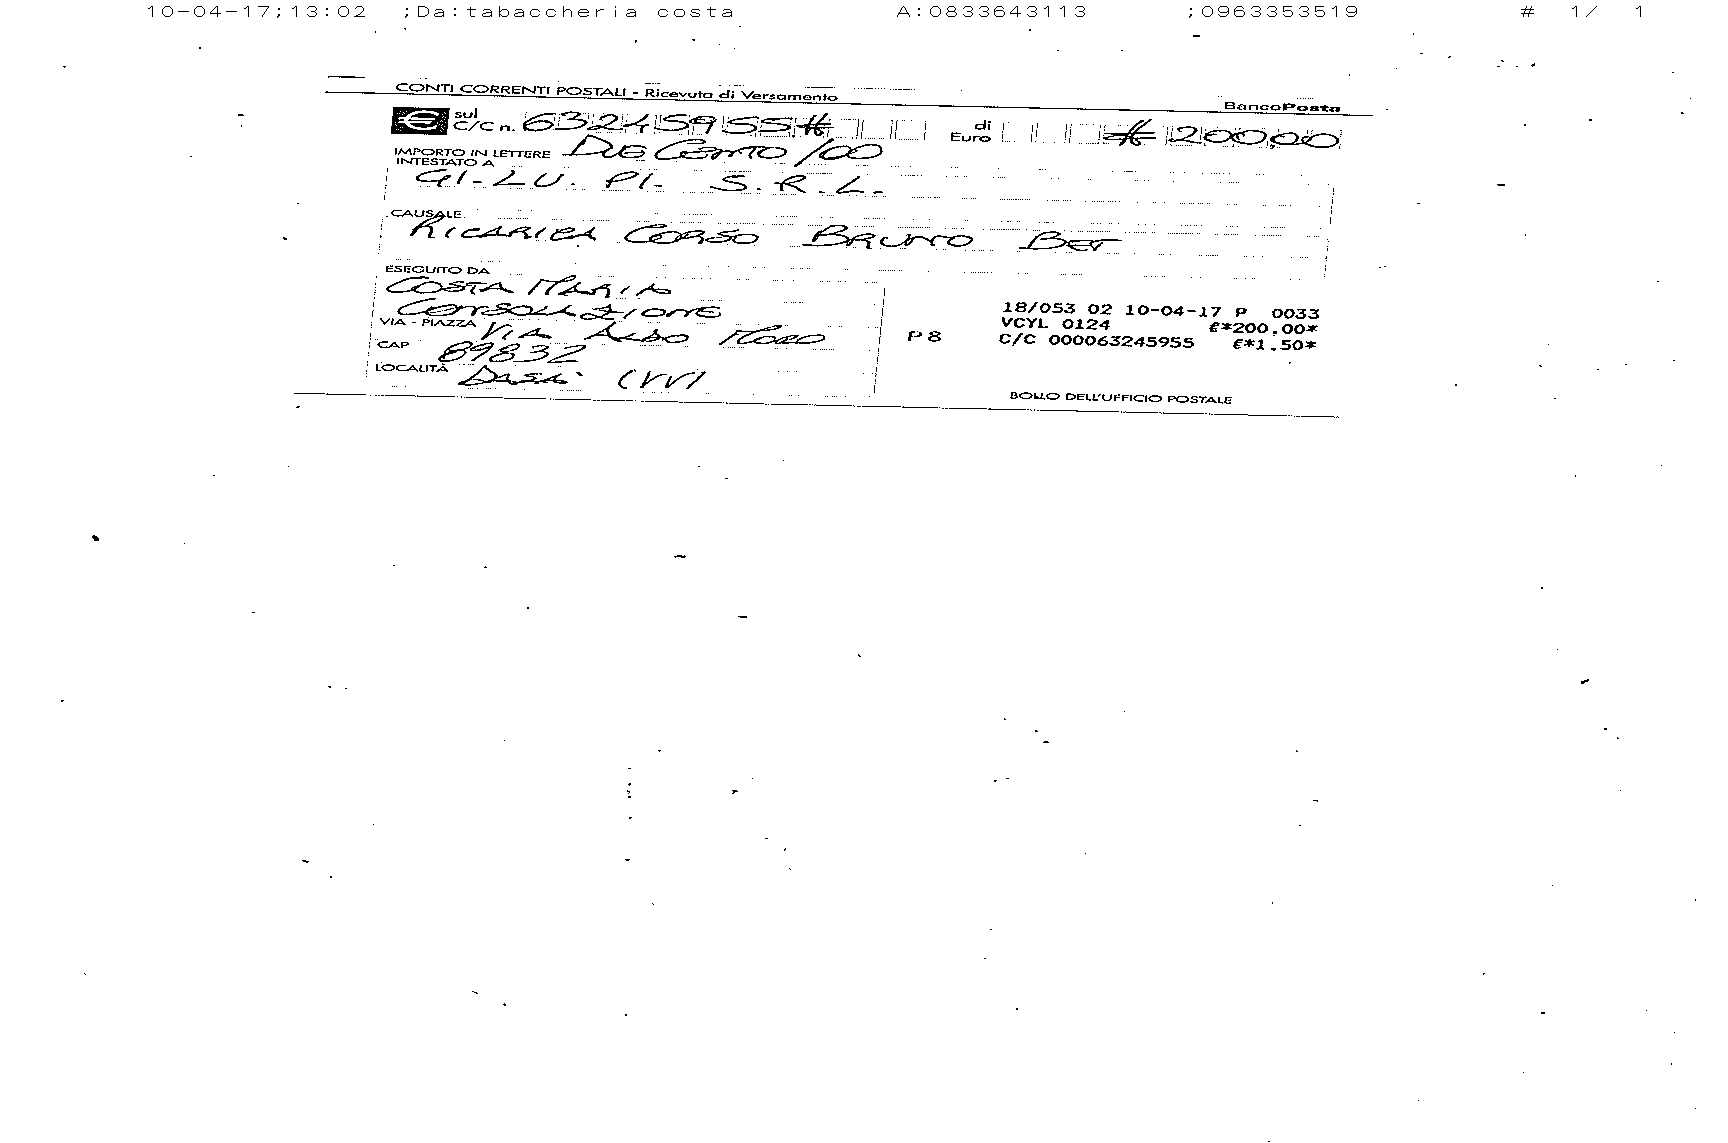 10-04-17;13:02 ;Da:tabaccheria costa A:0833643113 ;0963353519 # 1/ 1
CONTI CORRENTI POSTALI - Ricevuta di Versamento BancoPosta
€ sul C/C n. 63245955# di Euro # 200,00
IMPORTO IN LETTERE DUECENTO/00
INTESTATO A
GI.LU.PI. S.R.L.
CAUSALE
RICARICA CORSO BRUNO BET
ESEGUITO DA
COSTA MARIA
CONSOLAZIONE
VIA - PIAZZA VIA ALDO MORO
CAP 89832
LOCALITÀ DASÀ (VV)
18/053 02 10-04-17 P 0033
VCYL 0124 €*200,00*
P8 C/C 000063245955 €*1,50*
BOLLO DELL'UFFICIO POSTALE